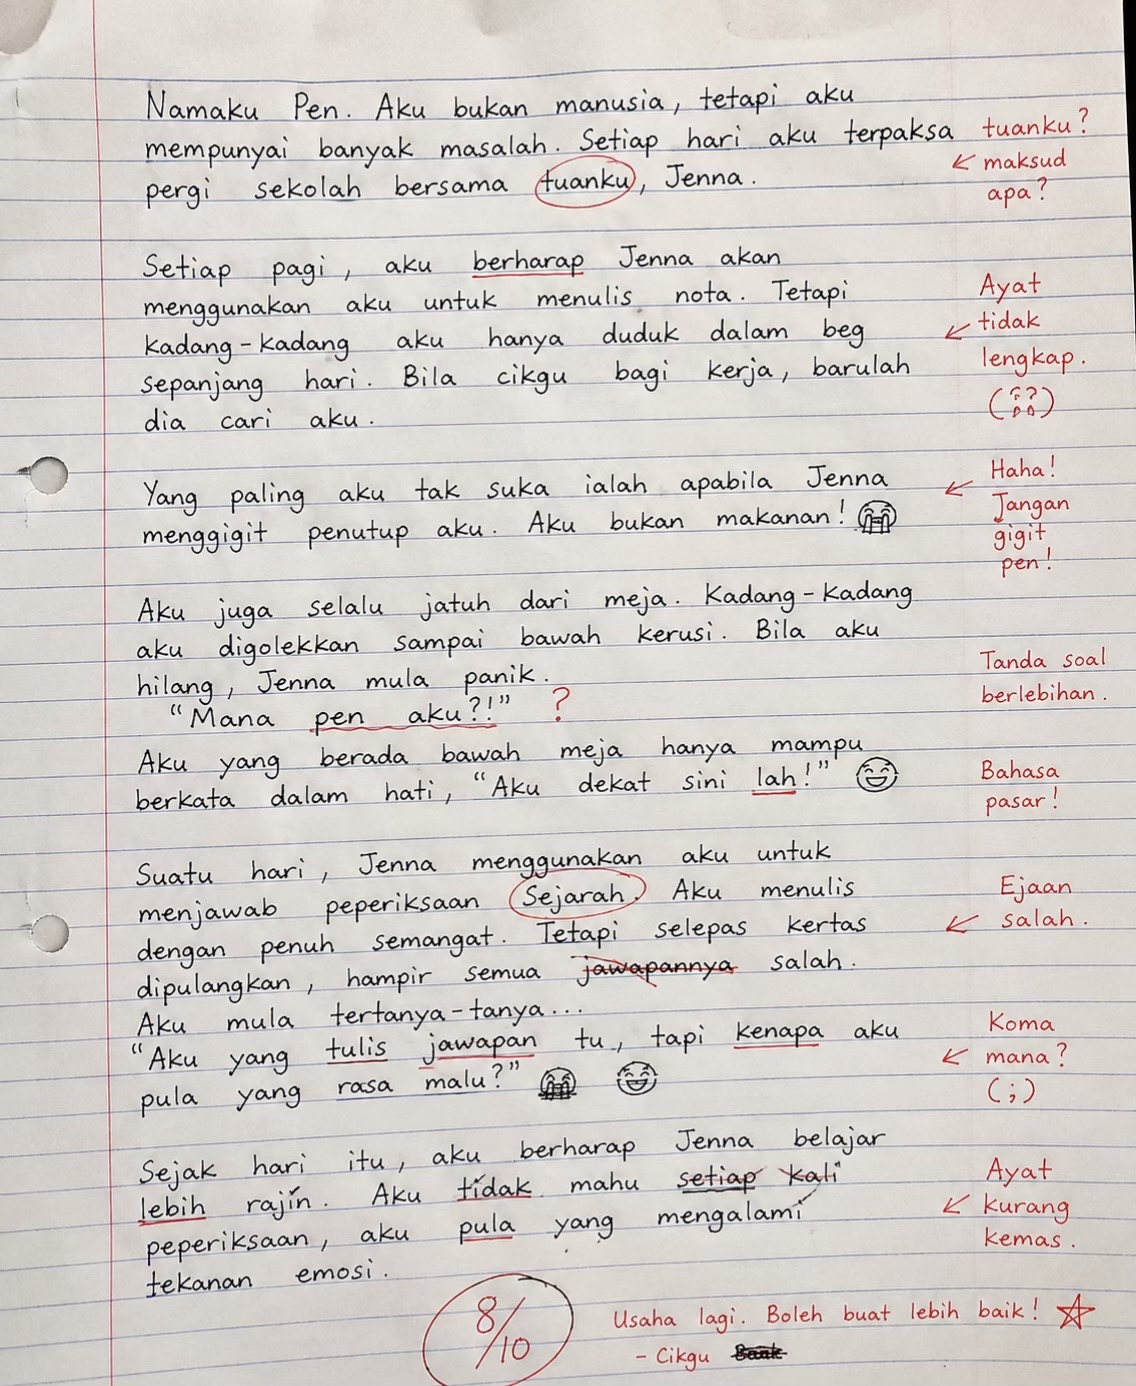 Namaku Pen. Aku bukan manusia, tetapi aku
mempunyai banyak masalah. Setiap hari aku terpaksa
pergi sekolah bersama tuanku, Jenna.
tuanku?
maksud
apa?
Setiap pagi, aku berharap Jenna akan
menggunakan aku untuk menulis nota. Tetapi
kadang-kadang aku hanya duduk dalam beg
sepanjang hari. Bila cikgu bagi kerja, barulah
dia cari aku.
Ayat
tidak
lengkap.
Yang paling aku tak suka ialah apabila Jenna
menggigit penutup aku. Aku bukan makanan! 😭
Haha!
Jangan
gigit
pen!
Aku juga selalu jatuh dari meja. Kadang-kadang
aku digolekkan sampai bawah kerusi. Bila aku
hilang, Jenna mula panik.
"Mana pen aku?!" ?
Tanda soal
berlebihan.
Aku yang berada bawah meja hanya mampu
berkata dalam hati, "Aku dekat sini lah!" 😅
Bahasa
pasar!
Suatu hari, Jenna menggunakan aku untuk
menjawab peperiksaan Sejarah. Aku menulis
dengan penuh semangat. Tetapi selepas kertas
dipulangkan, hampir semua jawapannya salah.
Ejaan
salah.
Aku mula tertanya-tanya...
"Aku yang tulis jawapan tu, tapi kenapa aku
pula yang rasa malu?" 😭 😅
Koma
mana?
(;)
Sejak hari itu, aku berharap Jenna belajar
lebih rajin. Aku tidak mahu setiap kali
peperiksaan, aku pula yang mengalami
tekanan emosi.
Ayat
kurang
kemas.
8/10
Usaha lagi. Boleh buat lebih baik! ☆
- Cikgu